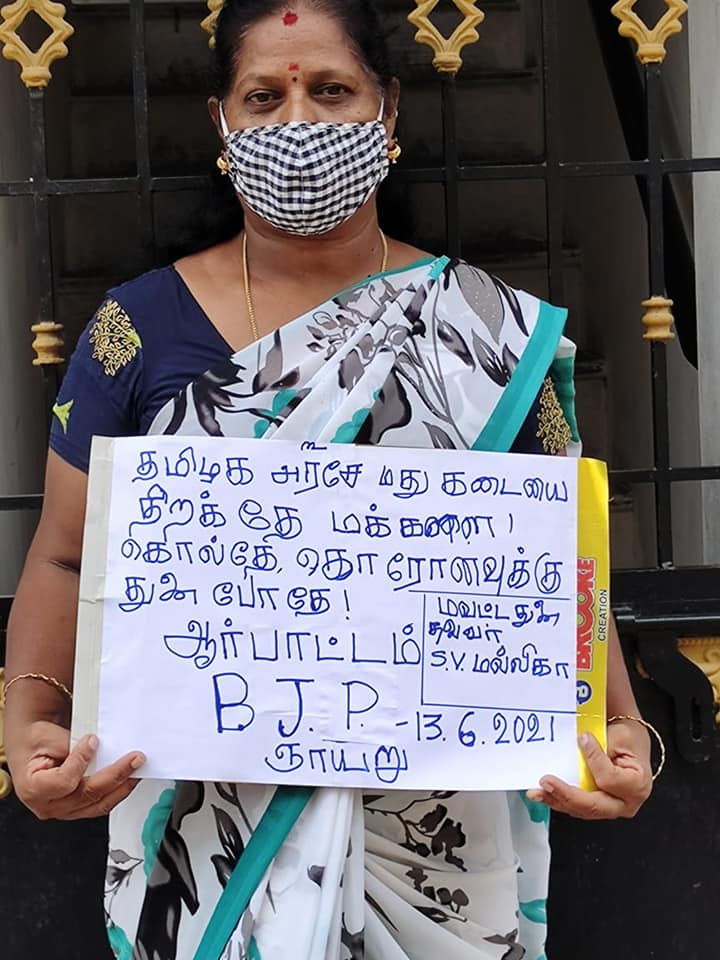 தமிழக அரசே மது கடையை
திறக்தே மக்களை!
கொல்தே, கொ ரோனவுக்கு
துனை போதே!
ஆர்பாட்டம்
மவட்ட துனை
தலவர்
S.V. மல்லிகா
BJ.P. - 13.6.2021
ஞாயறு
BROOKE
CREATION